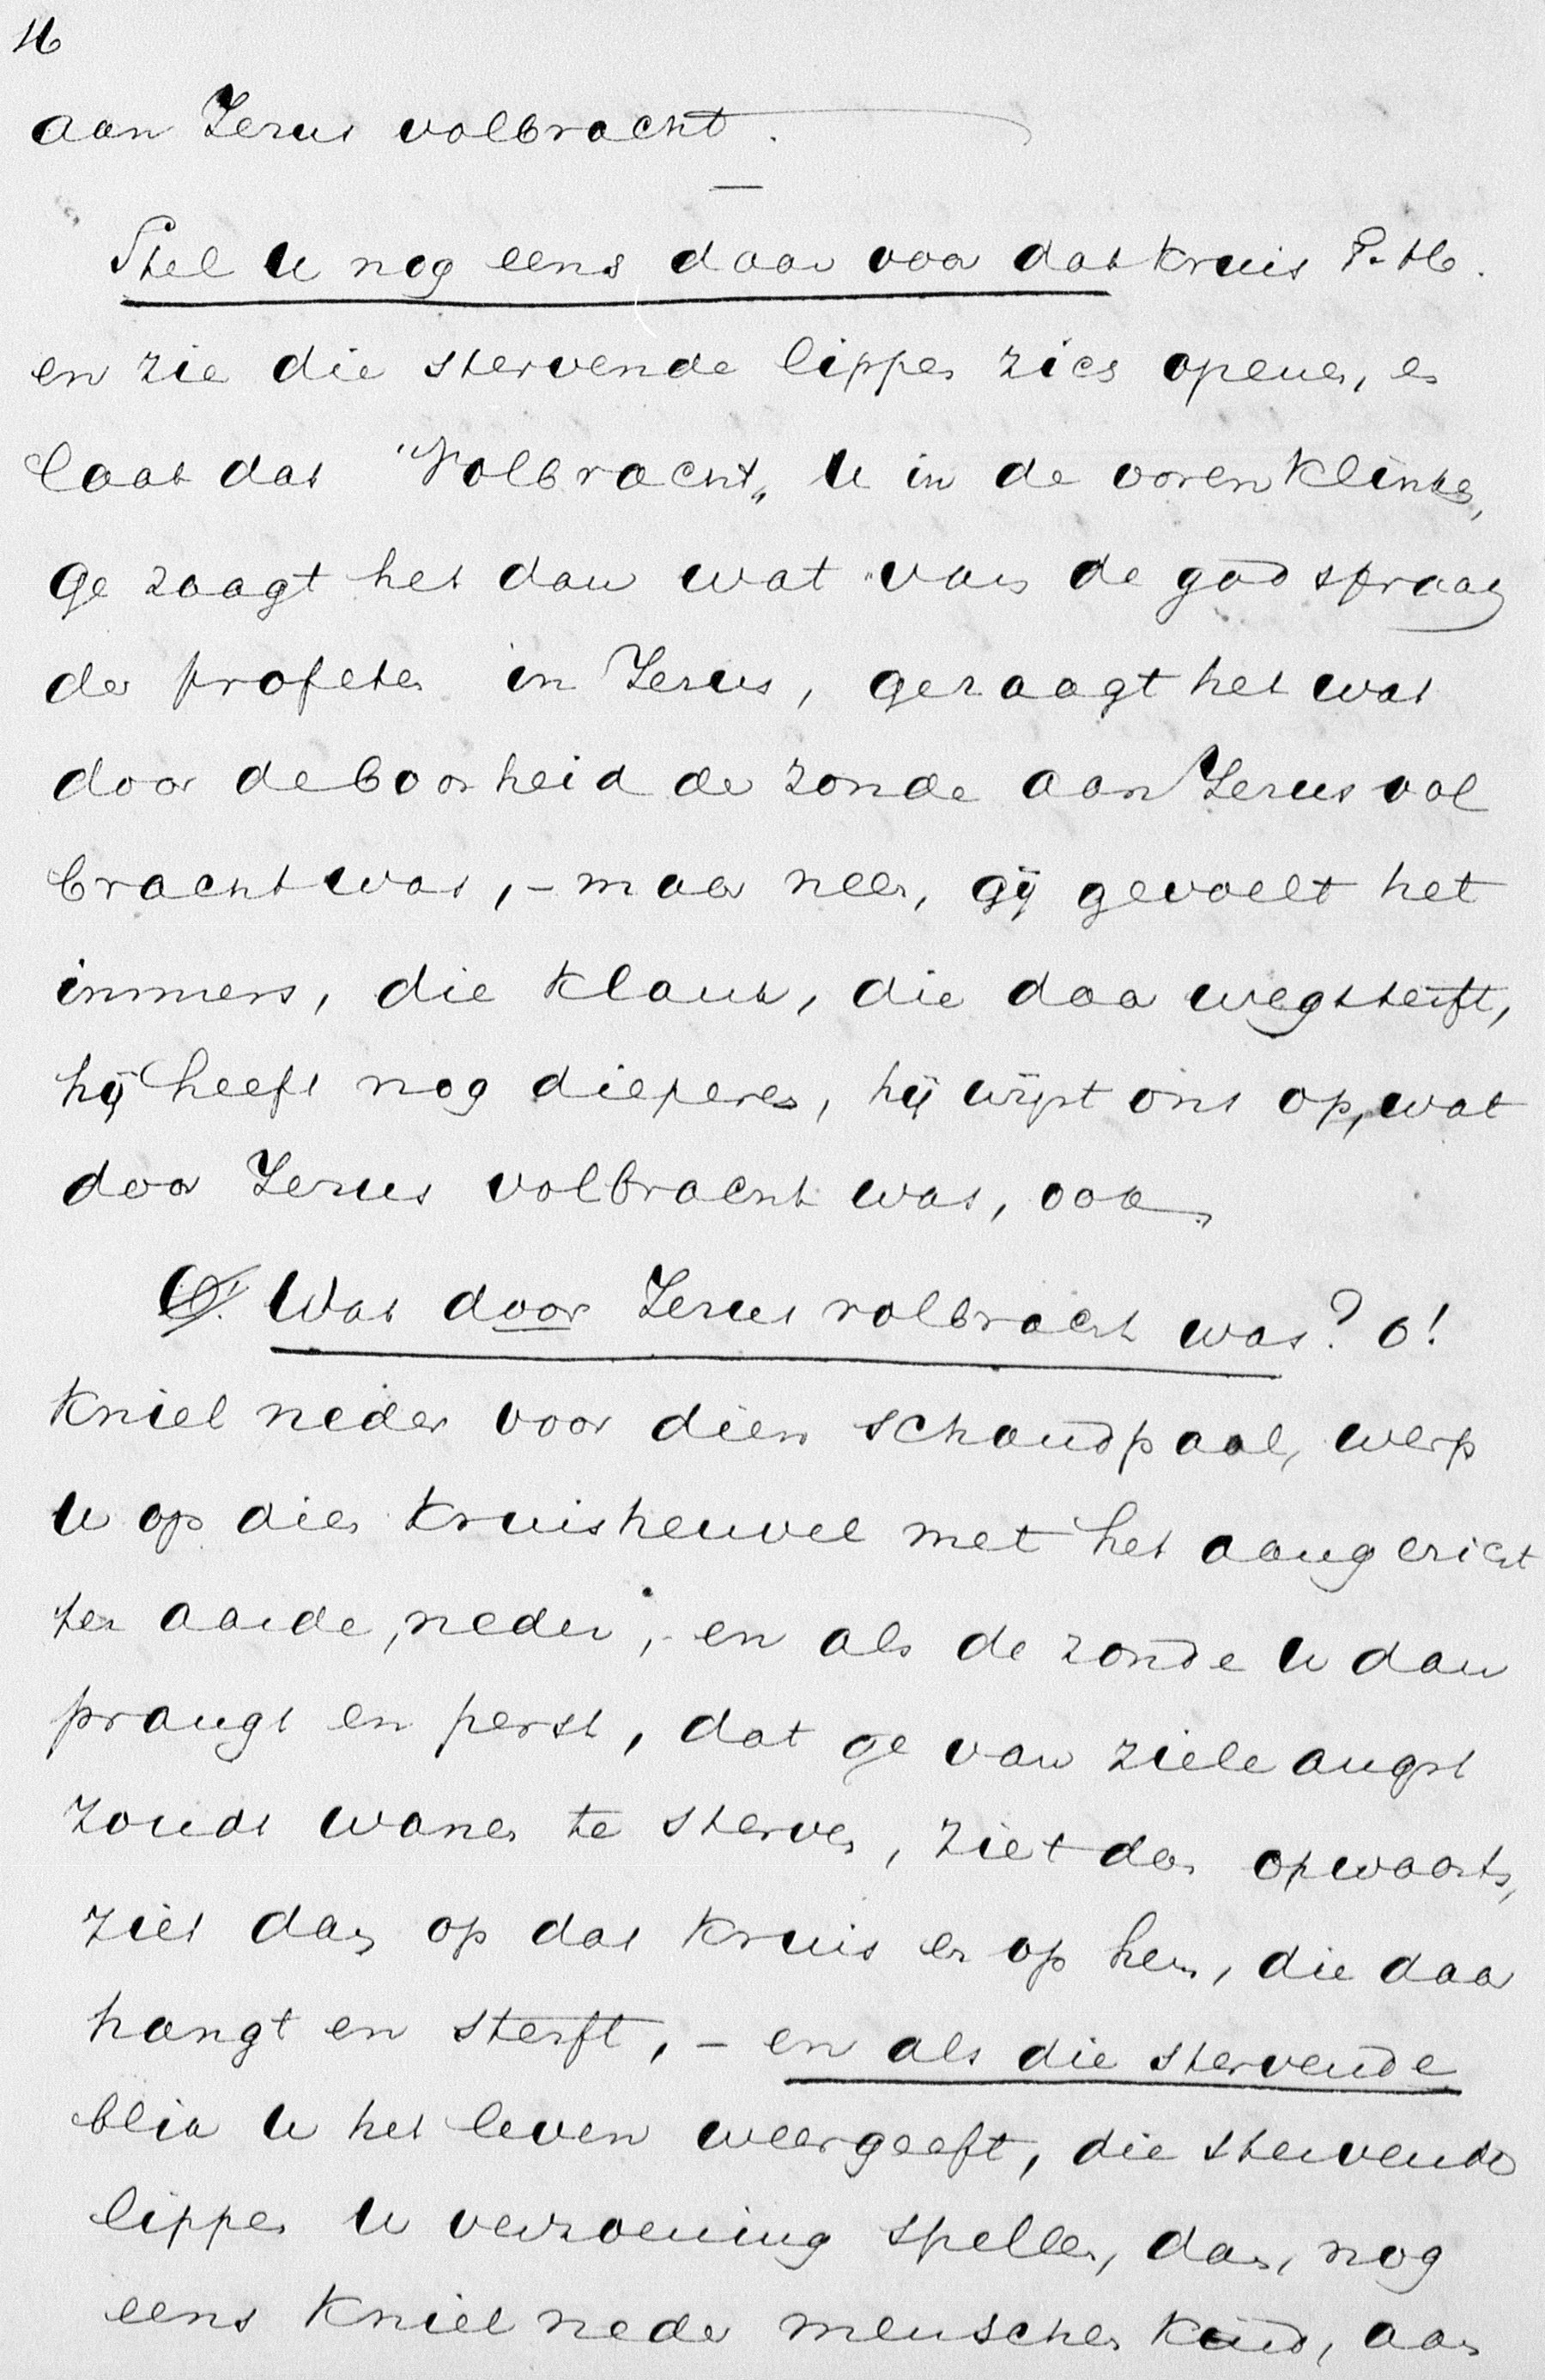 16
aan Jezus volbracht.
Stel U nog eens daar voor dat kruis T. H.
en zie die stervende lippen zich openen, en
laat dat "Volbracht" U in de ooren klinken,
ge zaagt het dan wat van de godspraak
der profeten in Jezus, ge zaagt het wat
door de boosheid der zonde aan Jezus vol
bracht was, - maar neen, gij gevoelt het
immers, die klank, die daar wegsterft,
hij heeft nog dieperen, hij wijst ons op, wat
door Jezus volbracht was, ook
Wat door Jezus volbracht was? o!
Kniel neder voor dien schandpaal, werp
U op dien kruisheuvel met het aangezicht
ter aarde, neder, - en als de zonde U dan
prangt en perst, dat ge van zieleangst
zoudt wanen te sterven, ziet dan opwaarts,
ziet dan op dat kruis en op hem, die daar
hangt en sterft, - en als die stervende
blik U het leven weergeeft, die stervende
lippen U verzoening spellen, dan, nog
eens kniel neder menschenkind, aan